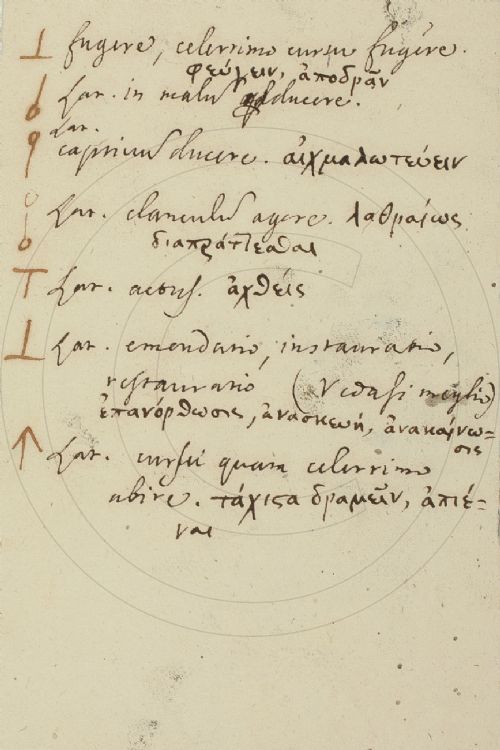 fugere, celerrimo cursu fugere.
φεύγειν, ἀποδρᾶν
Lat. in malũ adducere.
Lat.
captivũ ducere. αἰχμαλωτεύειν
Lat. clanculũ agere. λαθραίως
διαπράττεσθαι
Lat. actus. ἀχθείς
Lat. emendatio, instauratio,
restauratio (Vedasi meglio)
ἐπανόρθωσις, ἀνασκευή, ἀνακαίνω=
σις
Lat. cursu quam celerrimo
abire. τάχιστα δραμεῖν, ἀπιέ=
ναι